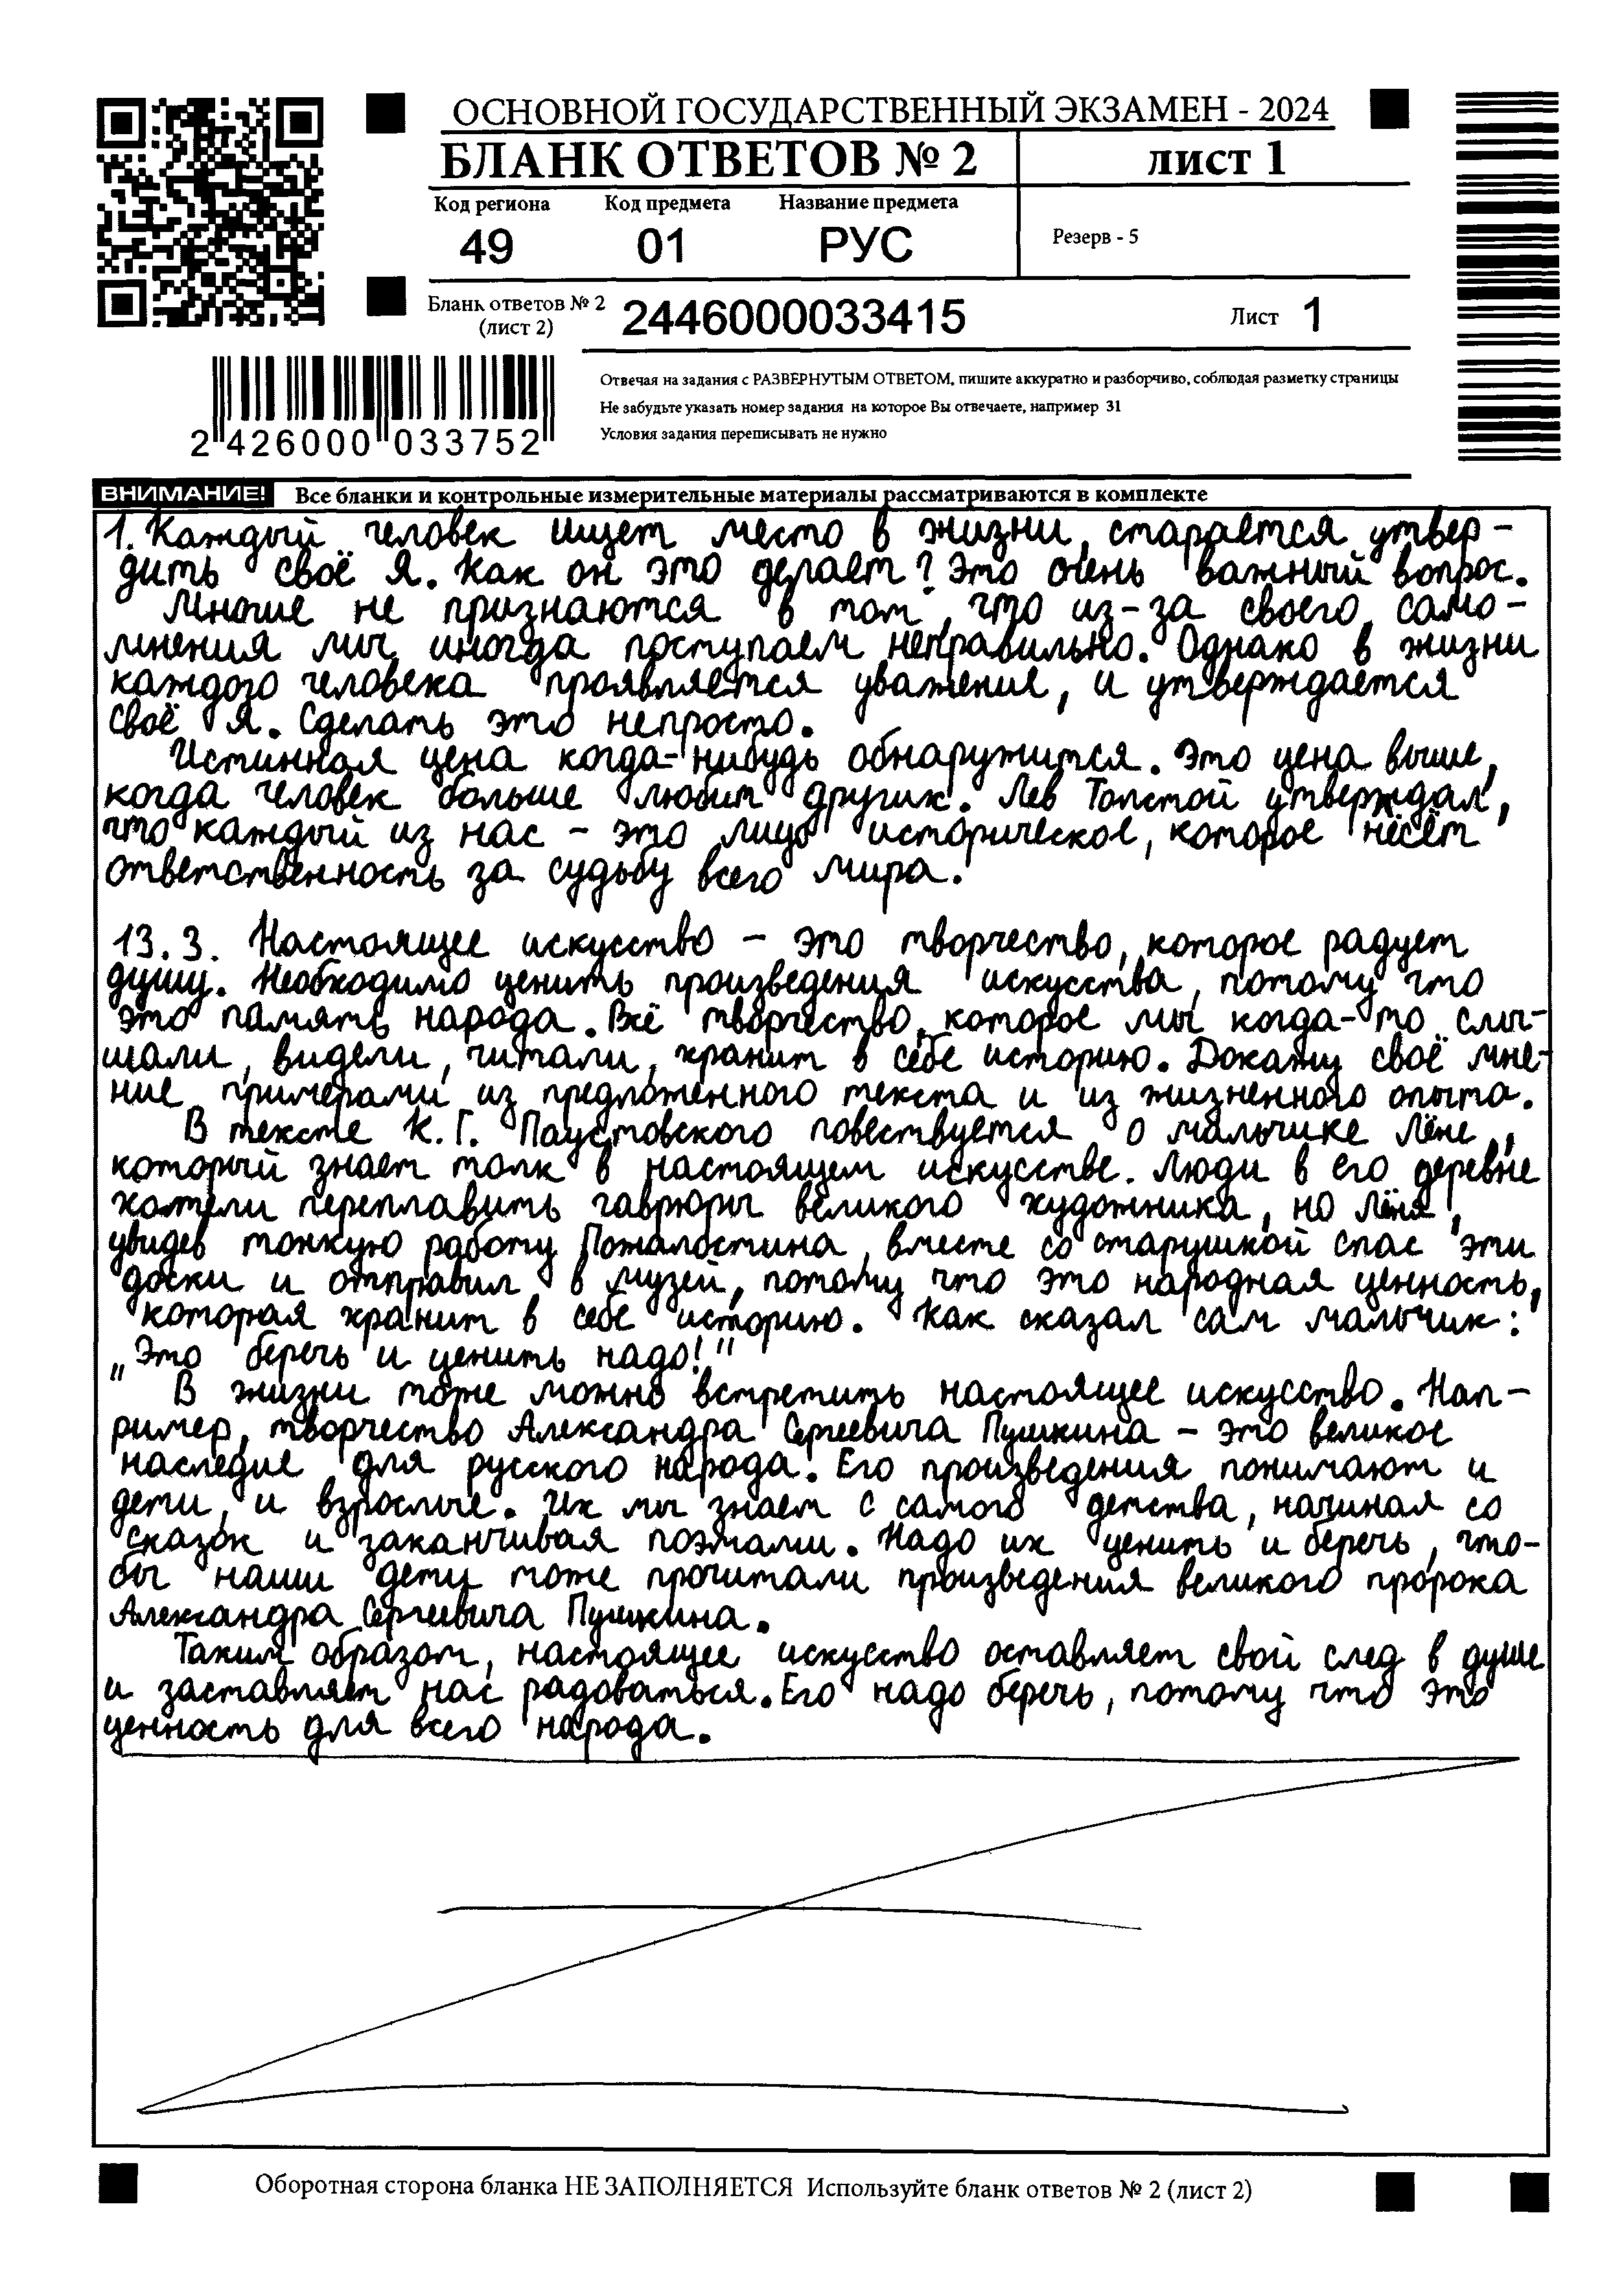 ОСНОВНОЙ ГОСУДАРСТВЕННЫЙ ЭКЗАМЕН - 2024
БЛАНК ОТВЕТОВ № 2
лист 1
Код региона Код предмета Название предмета
49 01 РУС
Резерв - 5
Бланк ответов № 2
(лист 2)
2446000033415
Лист 1
Отвечая на задания с РАЗВЕРНУТЫМ ОТВЕТОМ, пишите аккуратно и разборчиво, соблюдая разметку страницы
Не забудьте указать номер задания на которое Вы отвечаете, например 31
Условия задания переписывать не нужно
2 426000 033752
ВНИМАНИЕ! Все бланки и контрольные измерительные материалы рассматриваются в комплекте
1. Каждый человек ищет место в жизни, старается утвер-
дить своё я. Как он это делает? Это очень важный вопрос.
Многие не признаются в том, что из-за своего само-
мнения мы иногда поступаем неправильно. Однако в жизни
каждого человека проявляется уважение, и утверждается
своё я. Сделать это непросто.
Истинная цена когда-нибудь обнаружится. Это цена выше,
когда человек больше любит других. Лев Толстой утверждал,
что каждый из нас – это лицо историческое, которое несёт
ответственность за судьбу всего мира.
13.3. Настоящее искусство – это творчество, которое радует
душу. Необходимо ценить произведения искусства, потому что
это память народа. Всё творчество, которое мы когда-то слы-
шали, видели, читали, хранит в себе историю. Докажу своё мне-
ние примерами из предложенного текста и из жизненного опыта.
В тексте К.Г. Паустовского повествуется о мальчике Лёне,
который знает толк в настоящем искусстве. Люди в его деревне
хотели переплавить гаврюры великого художника, но Лёня,
увидев тонкую работу Пожалостина, вместе со старушкой спас эти
доски и отправил в музей, потому что это народная ценность,
которая хранит в себе историю. Как сказал сам мальчик:
„Это беречь и ценить надо!"
В жизни тоже можно встретить настоящее искусство. Нап-
ример, творчество Александра Сергеевича Пушкина – это великое
наследие для русского народа. Его произведения понимают и
дети, и взрослые. Их мы знаем с самого детства, начиная со
сказок и заканчивая поэмами. Надо их ценить и беречь, что-
бы наши дети тоже прочитали произведения великого пророка
Александра Сергеевича Пушкина.
Таким образом, настоящее искусство оставляет свой след в душе
и заставляет нас радоваться. Его надо беречь, потому что это
ценность для всего народа.
Оборотная сторона бланка НЕ ЗАПОЛНЯЕТСЯ Используйте бланк ответов № 2 (лист 2)